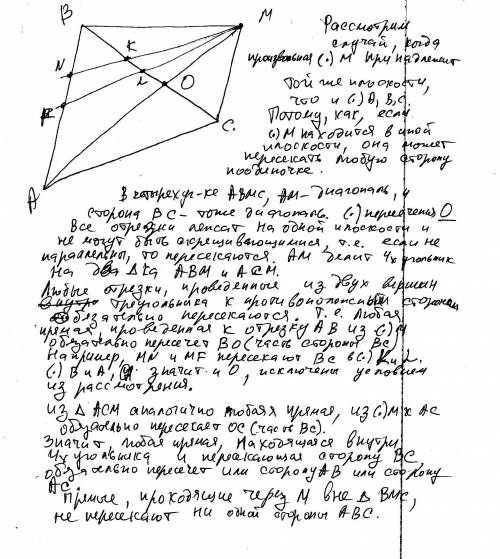 B
M
Рассмотрим
случай, когда
произвольная (·) M принадлежит
N
K
L
O
той же плоскости,
что и (·) A, B, C.
F
C.
Потому, как, если
(·) M находится в иной
плоскости, она может
A
пересекать любую сторону
поодиночке.
В четырехуг-ке ABMC, AM – диагональ, и
сторона BC – тоже диагональ. (·) пересечения O
Все отрезки лежат на одной плоскости и
не могут быть скрещивающимися, т.е. если не
параллельны, то пересекаются. AM делит 4х угольник
на два Δка ABM и ACM.
Любые отрезки, проведенные из двух вершин
треугольника к противоположным сторонам
обязательно пересекаются. Т.е. любая
прямая, проведенная к отрезку AB из (·) M
обязательно пересечет BO (часть стороны BC)
Например, MN и MF пересекают BC в (·) K и L.
(·) B и A, значит и O, исключены условием
из рассмотрения.
Из Δ ACM аналогично любая прямая, из (·) M к AC
обязательно пересекает OC (часть BC).
Значит, любая прямая, находящаяся внутри
4х угольника и пересекающая сторону BC,
обязательно пересечет или сторону AB или сторону
AC.
Прямые, проходящие через M вне Δ BMC,
не пересекают ни одной стороны ABC.